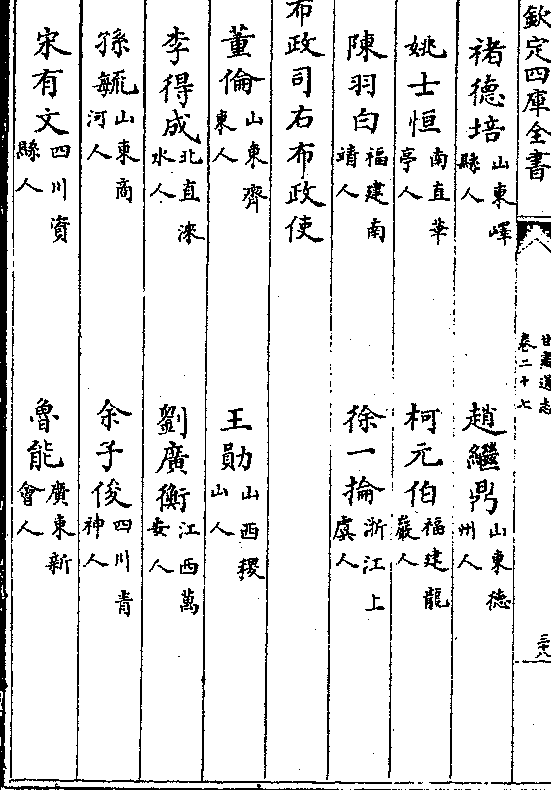 欽定四庫全書
甘肅通志
卷二十七
三八
褚德培山東嶧縣人 趙繼鼎山東德州人
姚士恒南直華亭人 柯元伯福建龍巖人
陳羽白福建南靖人 徐一掄浙江上虞人
布政司右布政使
董倫山東齊東人 王勛山西稷山人
李得成北直淶水人 劉廣衡江西萬安人
孫毓山東商河人 余子俊四川青神人
宋有文四川資縣人 魯能廣東新會人